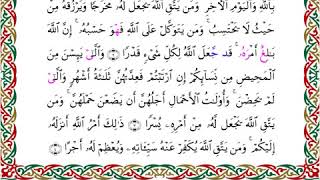 بِاللَّهِ وَالْيَوْمِ الْآخِرِ وَمَن يَتَّقِ اللَّهَ يَجْعَل لَّهُ مَخْرَجًا وَيَرْزُقْهُ مِنْ
حَيْثُ لَا يَحْتَسِبُ ۚ وَمَن يَتَوَكَّلْ عَلَى اللَّهِ فَهْوَ حَسْبُهُ ۚ إِنَّ اللَّهَ
بَالِغٌ أَمْرَهُ ۚ قَد جَّعَلَ اللَّهُ لِكُلِّ شَيْءٍ قَدْرًا ۝ وَالَّـٰى يَئِسْنَ مِنَ
الْمَحِيضِ مِن نِّسَائِكُمْ إِنِ ارْتَبْتُمْ فَعِدَّتُهُنَّ ثَلَـٰثَةُ أَشْهُرٍ وَالَّـٰى
لَمْ يَحِضْنَ ۚ وَأُوْلَـٰتُ الْأَحْمَالِ أَجَلُهُنَّ أَن يَضَعْنَ حَمْلَهُنَّ ۚ وَمَن
يَتَّقِ اللَّهَ يَجْعَل لَّهُ مِنْ أَمْرِهِ يُسْرًا ۝ ذَٰلِكَ أَمْرُ اللَّهِ أَنزَلَهُ
إِلَيْكُمْ ۚ وَمَن يَتَّقِ اللَّهَ يُكَفِّرْ عَنْهُ سَيِّئَاتِهِ وَيُعْظِمْ لَهُ أَجْرًا ۝